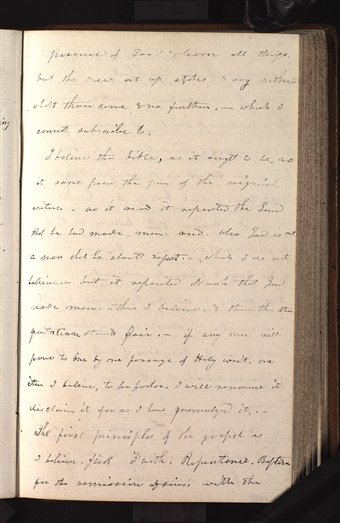 presence of God & learn all things.
but the creeds set up stakes & say hitherto
shalt thou come & no further. — which I
cannot subscribe to.
I believe the bible, as it ought to be, as
it came from the pen of the original
writers. as it read it repented the Lord
that he had made man. and also God is not
a man that he should repent. — which I do not
believe. — but it repented Noah that God
made man. — this I believe. & then the other
quotation stands fair. — if any man will
prove to me by one passage of Holy writ, one
item I believe, to be false. I will renounce it
disclaim it far as I have promulged it. —
The first principles of the gospel as
I believe. first Faith, Repentance. Baptism
for the remission of sins. with the